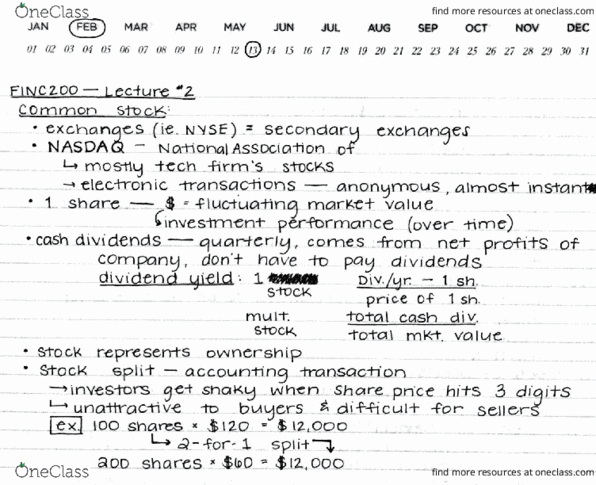 OneClass
find more resources at oneclass.com
JAN FEB MAR APR MAY JUN JUL AUG SEP OCT NOV DEC
01 02 03 04 05 06 07 08 09 10 11 12 13 14 15 16 17 18 19 20 21 22 23 24 25 26 27 28 29 30 31
FINC200 — Lecture #2
common stock:
• exchanges (ie. NYSE) = secondary exchanges
• NASDAQ — National Association of
↳ mostly tech firm's stocks
→ electronic transactions — anonymous, almost instant
• 1 share — $ = fluctuating market value
investment performance (over time)
• cash dividends — quarterly, comes from net profits of
company, don't have to pay dividends
dividend yield: 1 stock Div./yr. – 1 sh.
price of 1 sh.
mult. stock total cash div.
total mkt. value
• stock represents ownership
• stock split — accounting transaction
→ investors get shaky when share price hits 3 digits
↳ unattractive to buyers & difficult for sellers
ex 100 shares × $120 = $12,000
↳ 2-for-1 split
200 shares × $60 = $12,000
OneClass
find more resources at oneclass.com